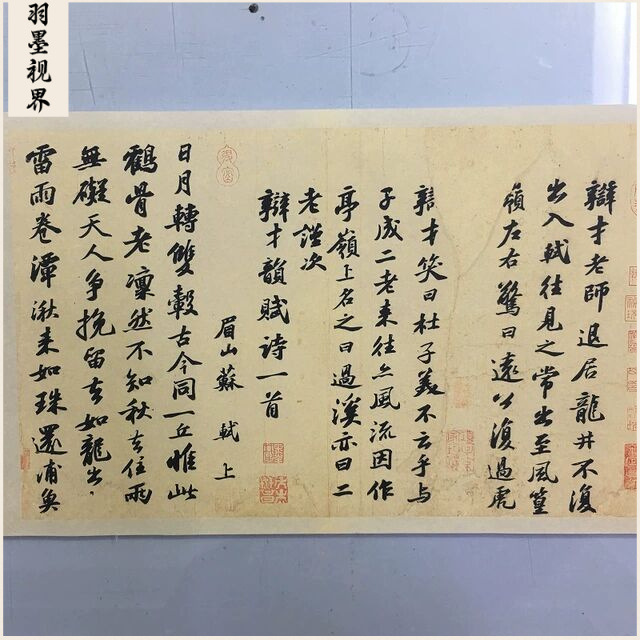 羽墨视界
辯才老師退居龍井不復
出入軾往見之常出至風篁
嶺左右驚曰遠公復過虎
辯才笑曰杜子美不云乎與
子成二老來往亦風流因作
亭嶺上名之曰過溪亦曰二
老謹次
辯才韻賦詩一首
眉山蘇軾上
日月轉雙轂古今同一丘惟此
鶴骨老凜然不知秋去住兩
無礙天人爭挽留去如龍出
雷雨卷潭湫來如珠還浦魚